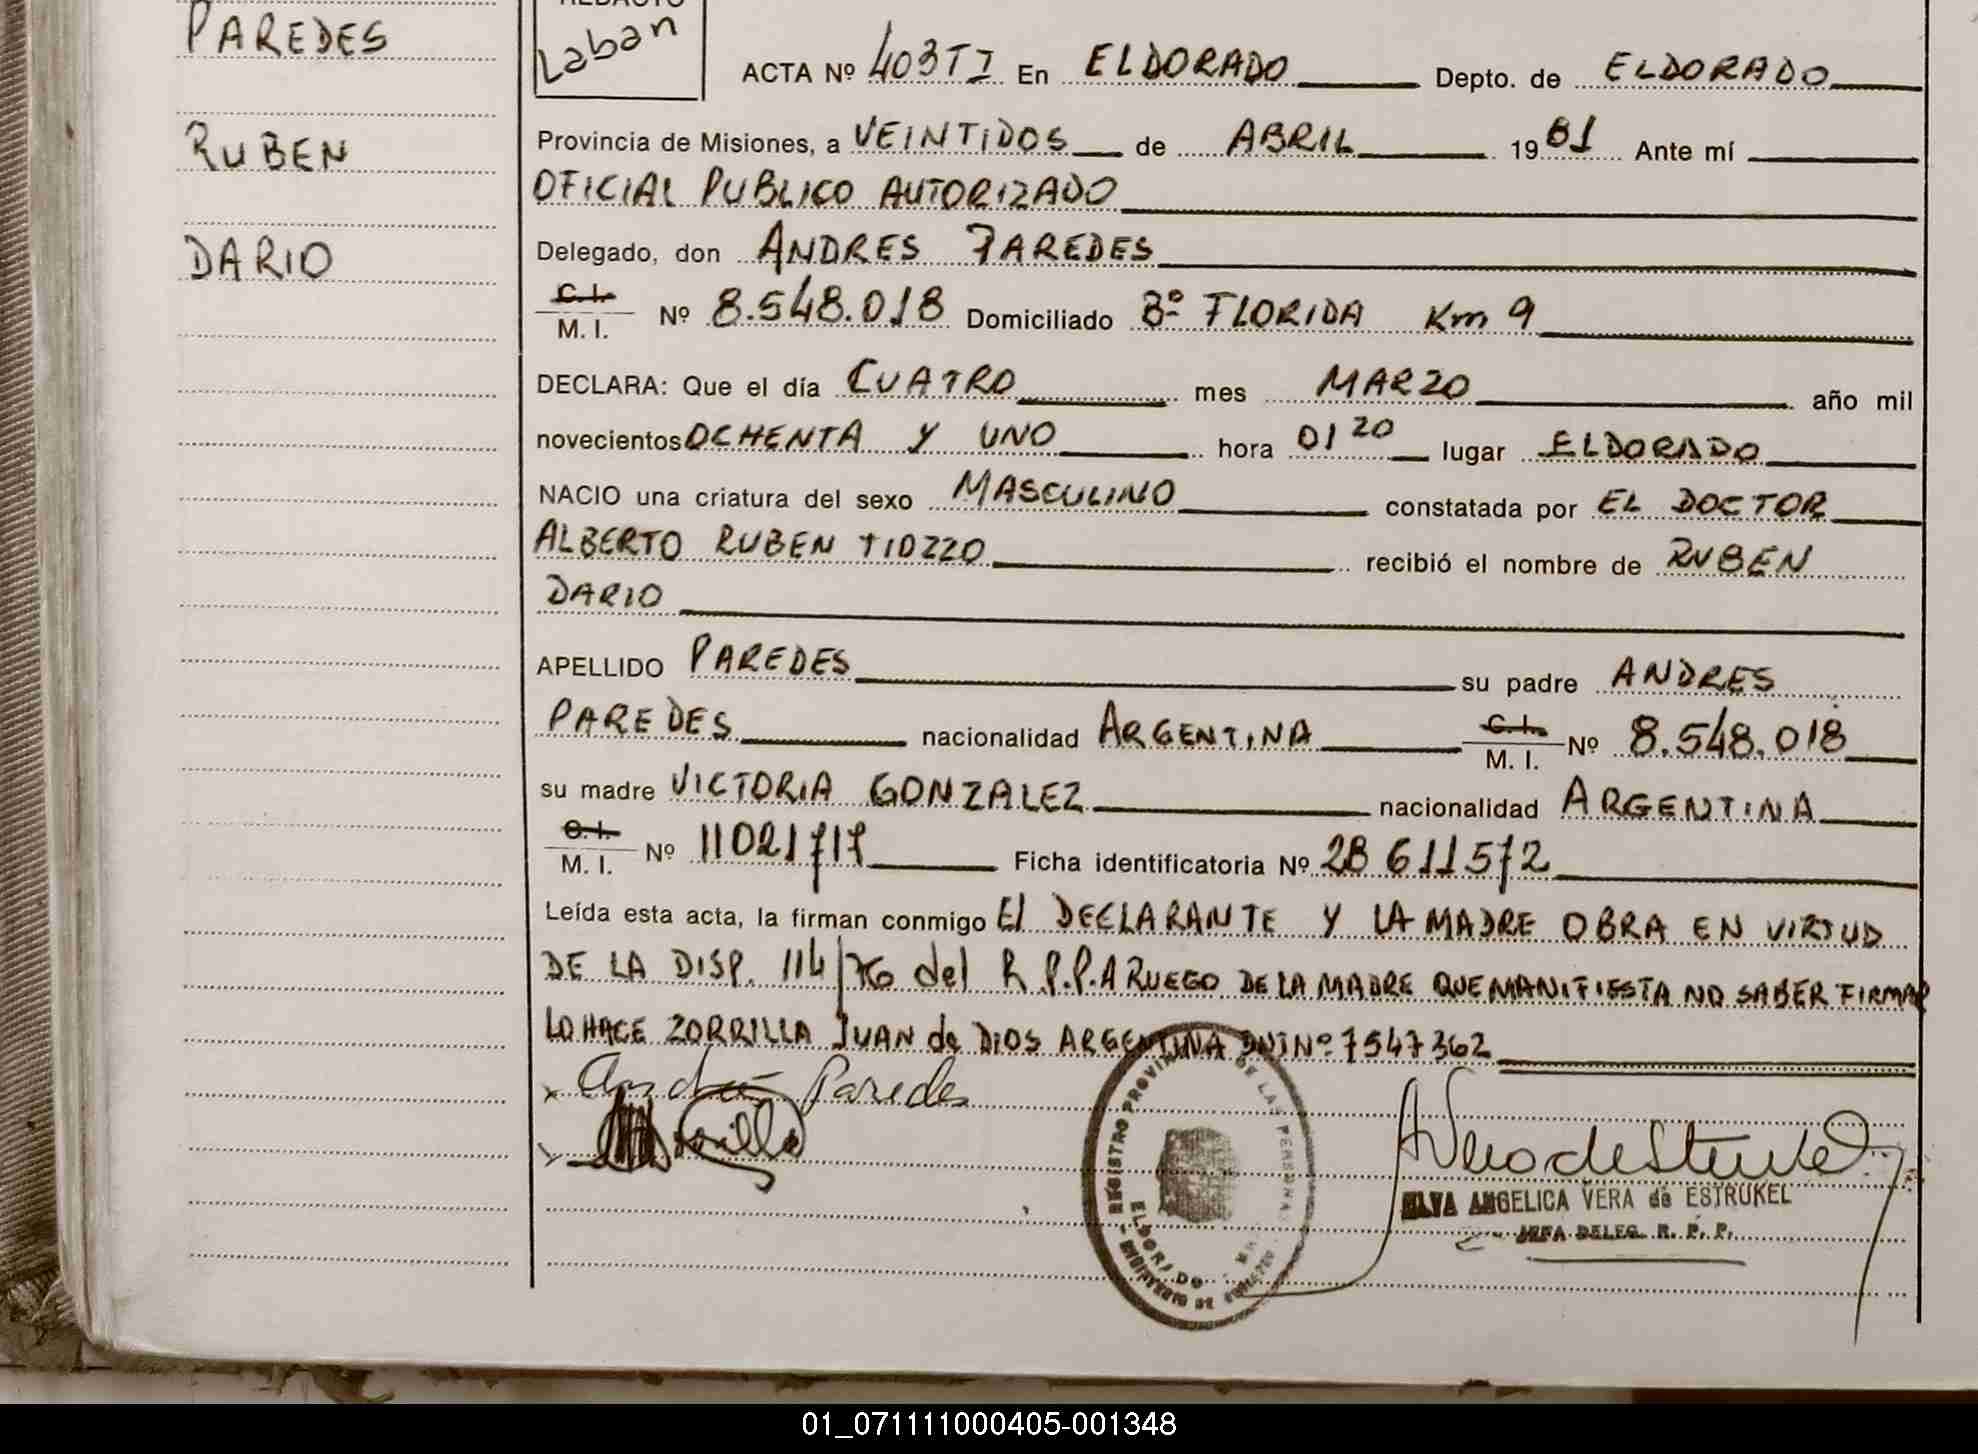 PAREDES
RUBEN
DARIO
REDACTO
Laban
ACTA Nº 403TI En ELDORADO Depto. de ELDORADO
Provincia de Misiones, a VEINTIDOS de ABRIL 1981 Ante mí
OFICIAL PUBLICO AUTORIZADO
Delegado, don ANDRES PAREDES
C.I. M. I. Nº 8.548.018 Domiciliado Bº FLORIDA Km 9
DECLARA: Que el día CUATRO mes MARZO año mil
novecientos OCHENTA Y UNO hora 01 20 lugar ELDORADO
NACIO una criatura del sexo MASCULINO constatada por EL DOCTOR
ALBERTO RUBEN TIOZZO recibió el nombre de RUBEN
DARIO
APELLIDO PAREDES su padre ANDRES
PAREDES nacionalidad ARGENTINA C.I. M. I. Nº 8.548.018
su madre VICTORIA GONZALEZ nacionalidad ARGENTINA
C.I. M. I. Nº 11021717 Ficha identificatoria Nº 28 611572
Leída esta acta, la firman conmigo El DECLARANTE Y LA MADRE OBRA EN VIRTUD
DE LA DISP. 114/76 del R.P.P. A RUEGO DE LA MADRE QUE MANIFIESTA NO SABER FIRMAR
LO HACE ZORRILLA JUAN de DIOS ARGENTINA DNI Nº 7547362
Andrés Paredes
Zorrilla
REGISTRO PROVINCIAL DE LAS PERSONAS
ELDORADO
MINISTERIO DE GOBIERNO
ELVA ANGELICA VERA de ESTRUKEL
JEFA DELEG. R. P. P.
01_071111000405-001348